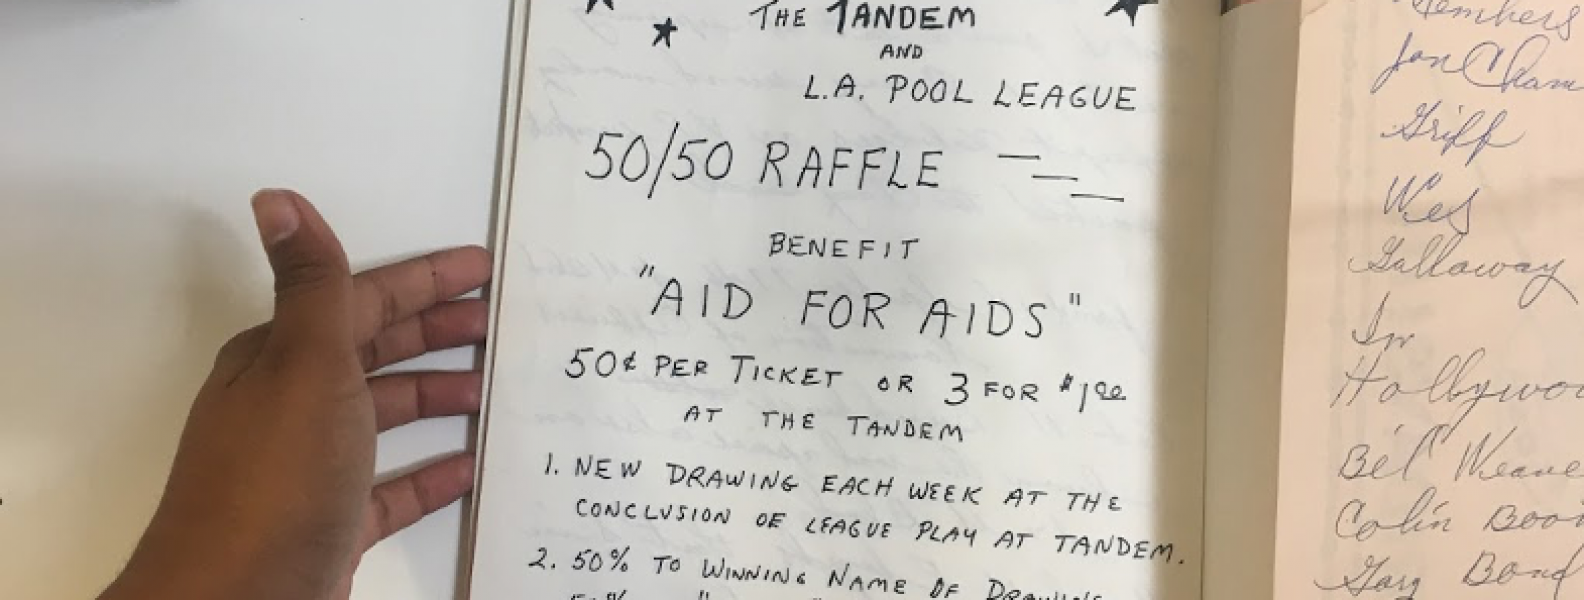 THE TANDEM
AND
L.A. POOL LEAGUE
50/50 RAFFLE
BENEFIT
"AID FOR AIDS"
50¢ PER TICKET OR 3 FOR $1.00
AT THE TANDEM
1. NEW DRAWING EACH WEEK AT THE
CONCLUSION OF LEAGUE PLAY AT TANDEM.
2. 50% TO WINNING NAME OF DRAWING
Jon Cham
Griff
Wes
Gallaway
In
Hollywoo
Bel Weave
Colin Boo
Gary Bond